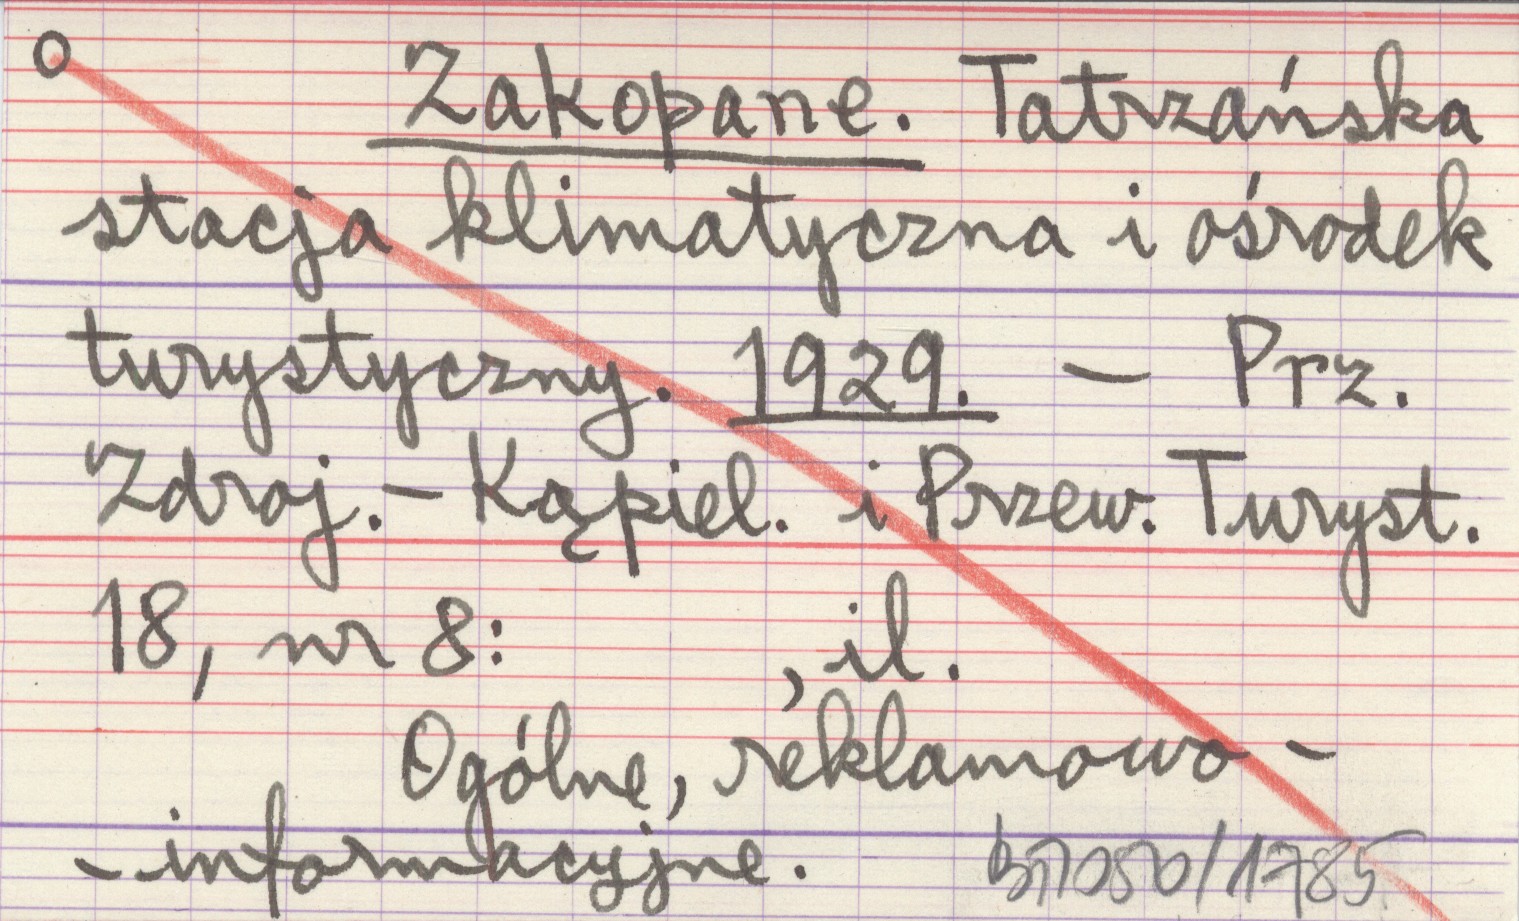 O Zakopane. Tatrzańska
stacja klimatyczna i ośrodek
turystyczny. 1929. — Prz.
Zdroj.-Kąpiel. i Przew. Turyst.
18, nr 8: , il.
Ogólne, reklamowo-
-informacyjne.
/1785